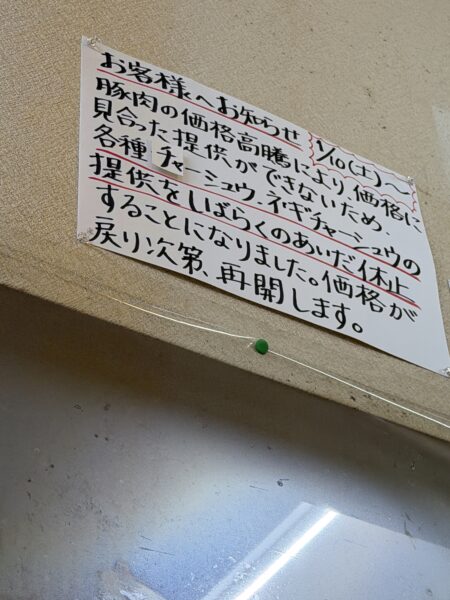 お客様へお知らせ 1/10(土)〜
豚肉の価格高騰により、価格に
見合った提供ができないため、
各種チャーシュウ、ネギチャーシュウの
提供をしばらくのあいだ休止
することになりました。価格が
戻り次第、再開します。